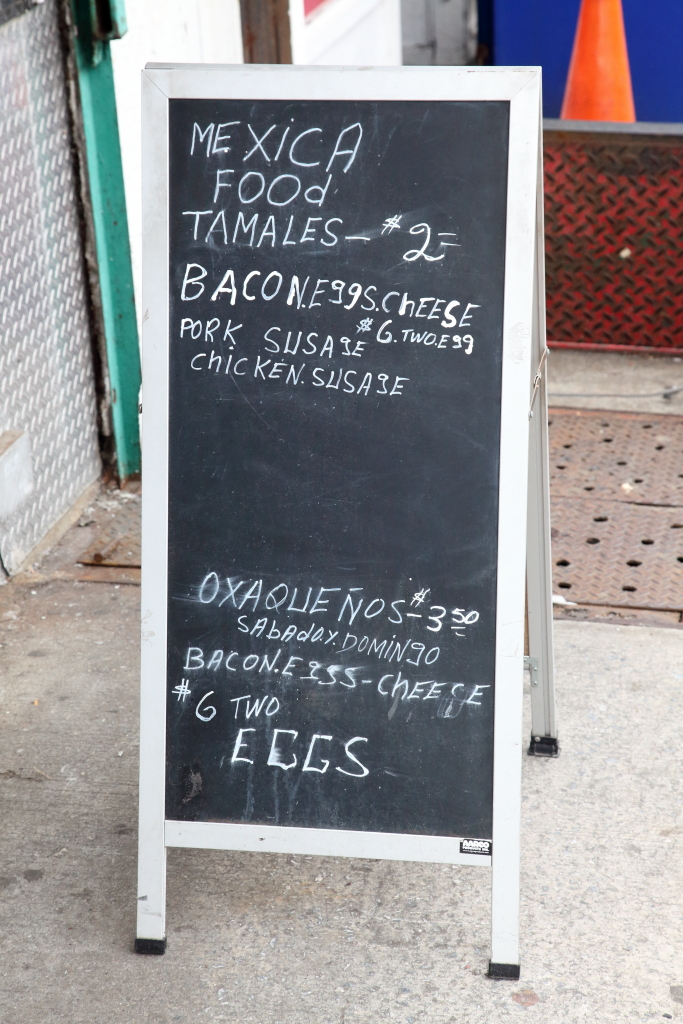 MEXiCA
FOOd
TAMALES- $2=
BACON.E99S.ChEESE
PORK SUSA9E $6.TWO.E99
ChiCKEN.SUSA9E
OXAQUEÑOS-$3.50
SAbAdO.Y.DOMiN9O
BACON.E9SS-ChEESE
$6 TWO
EGGS
AARCO